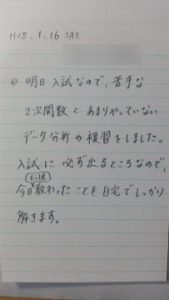 H28.1.16 SAT
◎ 明日入試なので、苦手な
2次関数とあまりやっていない
データ分析の復習をしました。
入試に必ず出るところなので、
今日教わったことを自宅でしっかり
解きます。